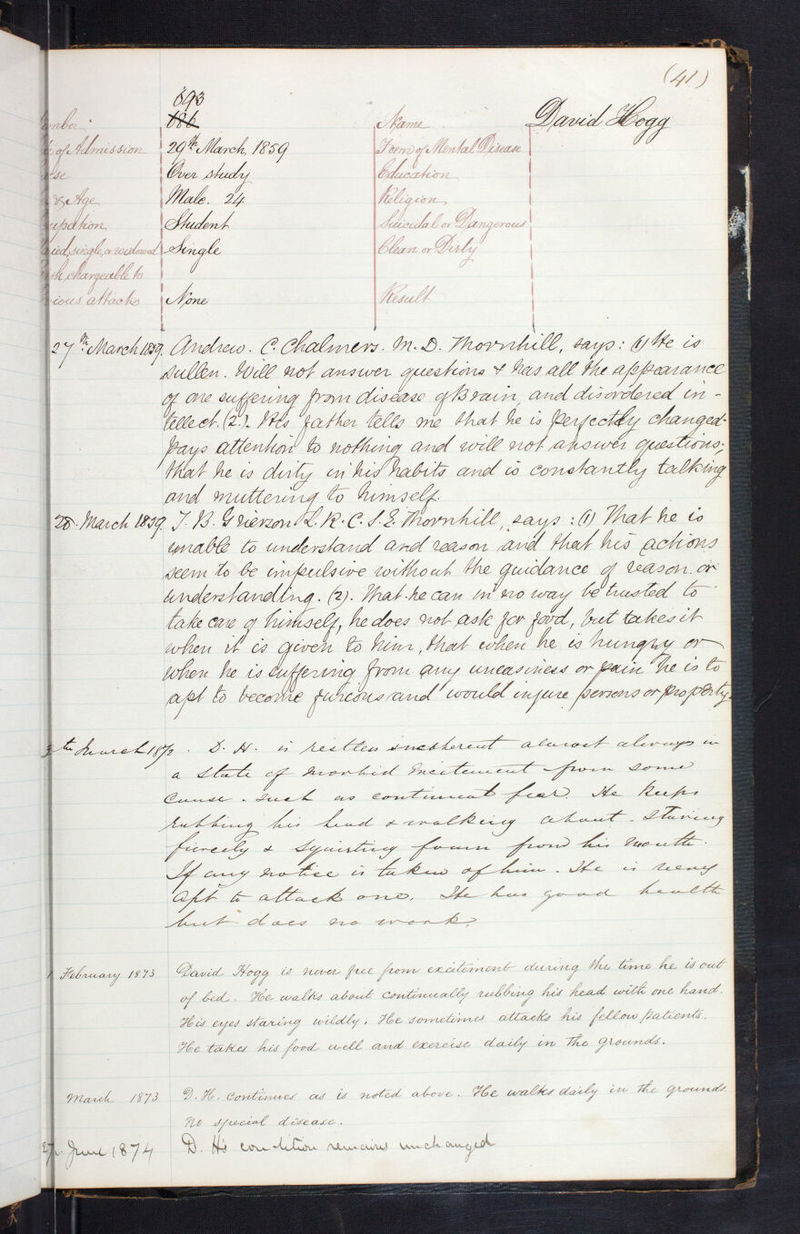 (41)
893
186
Name
David Hogg
of Admission
29th March 1859
Form of Mental Disease
Over study
Education
& Age
Male. 24
Religion
Student
Suicidal or Dangerous
single, or widowed
Single
Clean or Dirty
chargeable to
attacks
None
Result
27th March 1859. Andrew. C. Chalmers. M. D. Thornhill, says: (1) He is
sullen. Will not answer questions & has all the appearance
of one suffering from disease of Brain, and disordered in-
tellect. (2.). His father tells me that he is perfectly changed-
pays attention to nothing and will not answer questions;
that he is dirty in his habits and is constantly talking
and muttering to himself.
28. March 1859. T. B. Grierson L. R. C. S. E. Thornhill, says: (1) That he is
unable to understand and reason and that his actions
seem to be impulsive without the guidance of reason or
understanding. (2). That he can in no way be trusted to
take care of himself, he does not ask for food, but takes it
when it is given to him, that when he is hungry or
when he is suffering from any uneasiness or pain he is to
apt to become furious and would injure persons or property.
th March 1870. D. H. is restless incoherent almost always in
a state of morbid incitement from some
cause. such as continual fear. He keeps
rubbing his head & walking about. Staring
fiercely & squirting foam from his mouth.
If any notice is taken of him. He is very
apt to attack one. He has good health
but does no work.
February 1873 David Hogg is never free from excitement during the time he is out
of bed. He walks about continually rubbing his head with one hand.
His eyes staring wildly. He sometimes attacks his fellow patients.
He takes his food well and exercise daily in the grounds.
March 1873 D. H. continues as is noted above. He walks daily in the grounds
no special disease.
27. June 1874 D. Hs condition remains unchanged